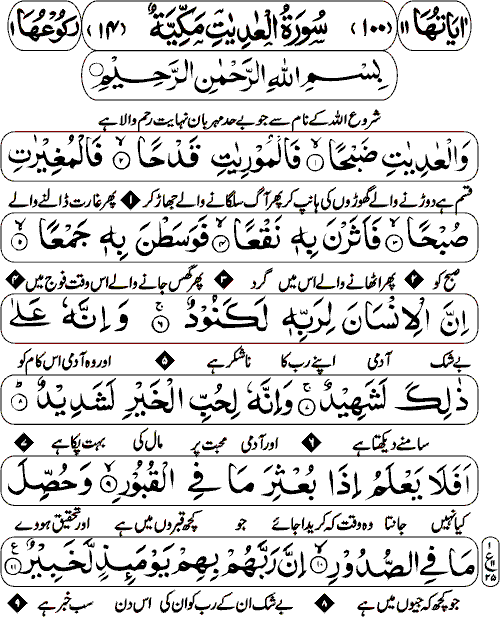 اٰیَاتُهَا ۱۱ (۱۰۰) سُوۡرَةُ الۡعٰدِیٰتِ مَكِّیَّةٌ (۱۴) رُكُوۡعُهَا ۱
بِسۡمِ اللهِ الرَّحۡمٰنِ الرَّحِیۡمِ
شروع اللہ کے نام سے جو بے حد مہربان نہایت رحم والا ہے
وَالۡعٰدِیٰتِ ضَبۡحًا ۙ۱ فَالۡمُوۡرِیٰتِ قَدۡحًا ۙ۲ فَالۡمُغِیۡرٰتِ
قسم ہے دوڑنے والے گھوڑوں کی ہانپ کر پھر آگ سلگانے والے جھاڑ کر ۱ پھر غارت ڈالنے والے
صُبۡحًا ۙ۳ فَاَثَرۡنَ بِهٖ نَقۡعًا ۙ۴ فَوَسَطۡنَ بِهٖ جَمۡعًا ۙ۵
صبح کو ۲ پھر اٹھانے والے اس میں گرد ۳ پھر گھس جانے والے اس وقت فوج میں ۴
اِنَّ الۡاِنۡسَانَ لِرَبِّهٖ لَكَنُوۡدٌ ۚ۶ وَ اِنَّهٗ عَلٰى
بے شک آدمی اپنے رب کا ناشکر ہے ۵ اور وہ آدمی اس کام کو
ذٰلِكَ لَشَهِیۡدٌ ۚ۷ وَاِنَّهٗ لِحُبِّ الۡخَیۡرِ لَشَدِیۡدٌ ؕ۸
سامنے دیکھتا ہے ۶ اور آدمی محبت پر مال کی بہت پکا ہے ۷
اَفَلَا یَعۡلَمُ اِذَا بُعۡثِرَ مَا فِی الۡقُبُوۡرِ ۙ۹ وَحُصِّلَ
کیا نہیں جانتا وہ وقت کہ کریدا جائے جو کچھ قبروں میں ہے اور تحقیق ہووے
مَا فِی الصُّدُوۡرِ ۙ۱۰ اِنَّ رَبَّهُمۡ بِهِمۡ یَوۡمَئِذٍ لَّخَبِیۡرٌ ۱۱ ع ۱ ع ۱۱ ۲۵
جو کچھ کہ جیوں میں ہے ۸ بے شک ان کے رب کو ان کی اس دن سب خبر ہے ۹